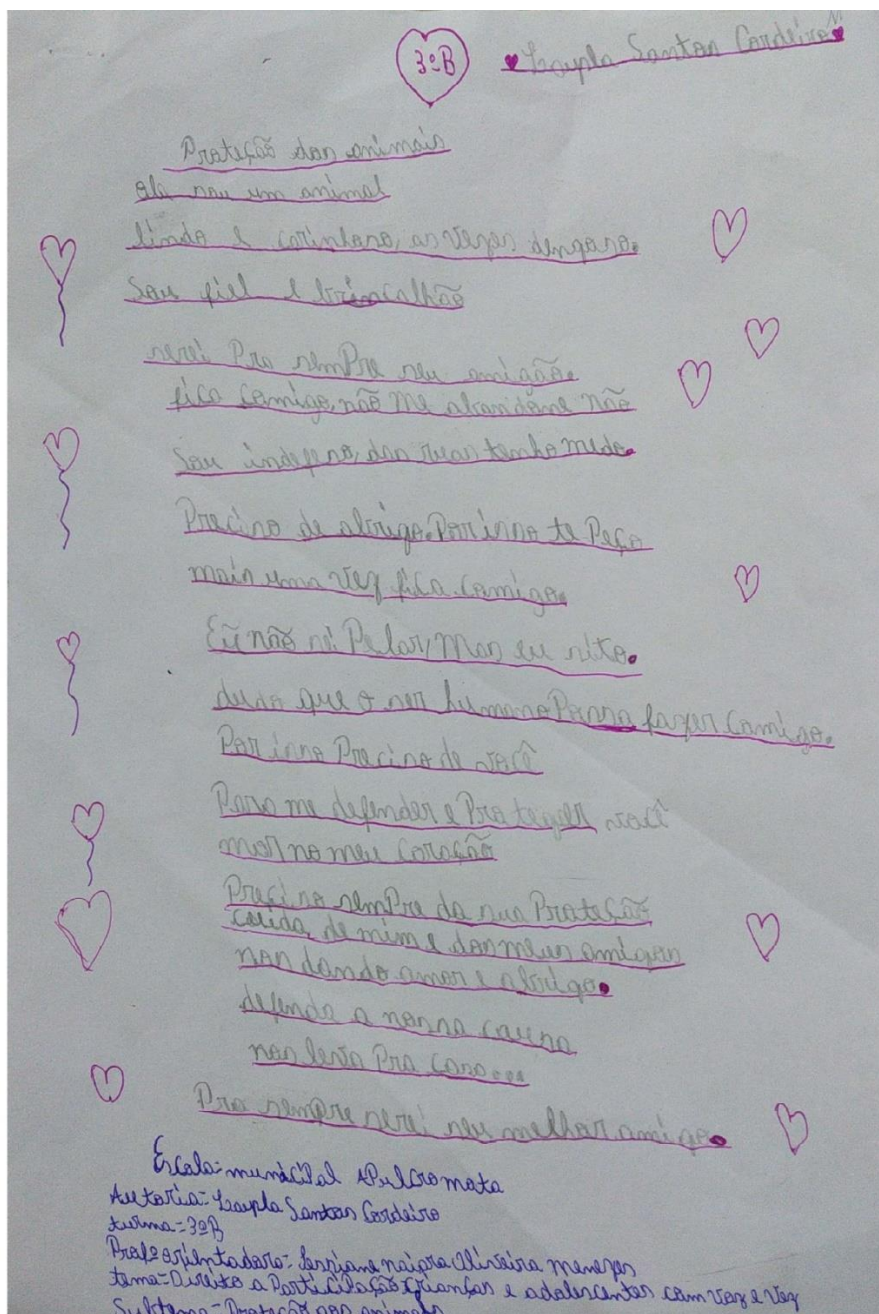 3ºB
Laupla Santos Cordeiro
Proteção dos animais
Ola sou um animal
lindo e carinhoso, as vezes dengoso.
Sou fiel e brincalhão
serei Pra semPre seu amigão.
fica comigo, não Me abandone não
Sou indefeso, das ruas tenho medo.
Preciso de abrigo. Por isso te Peço
mais uma vez fica comigo.
Eu não sei Falar, Mas eu sito.
dudo que o ser humano Possa fazer comigo.
Por isso Preciso de você
Para me defender e Proteger você
mor no meu coração
Preciso semPre da sua Proteção
cuida de mim e dos meus amigos
nos dando amor e abrigo.
defenda a nossa causa
nos leva Pra casa...
Pra sempre serei seu melhor amigo.
Escola= municiPal APulcro mata
Autoria= Laupla Santos Cordeiro
turma= 3ºB
Profº orientadora= naiara Oliveira menezes
tema= Direito a ParticiPação Crianças e adolescentes com voz e vez
Subtema= Proteção aos animais